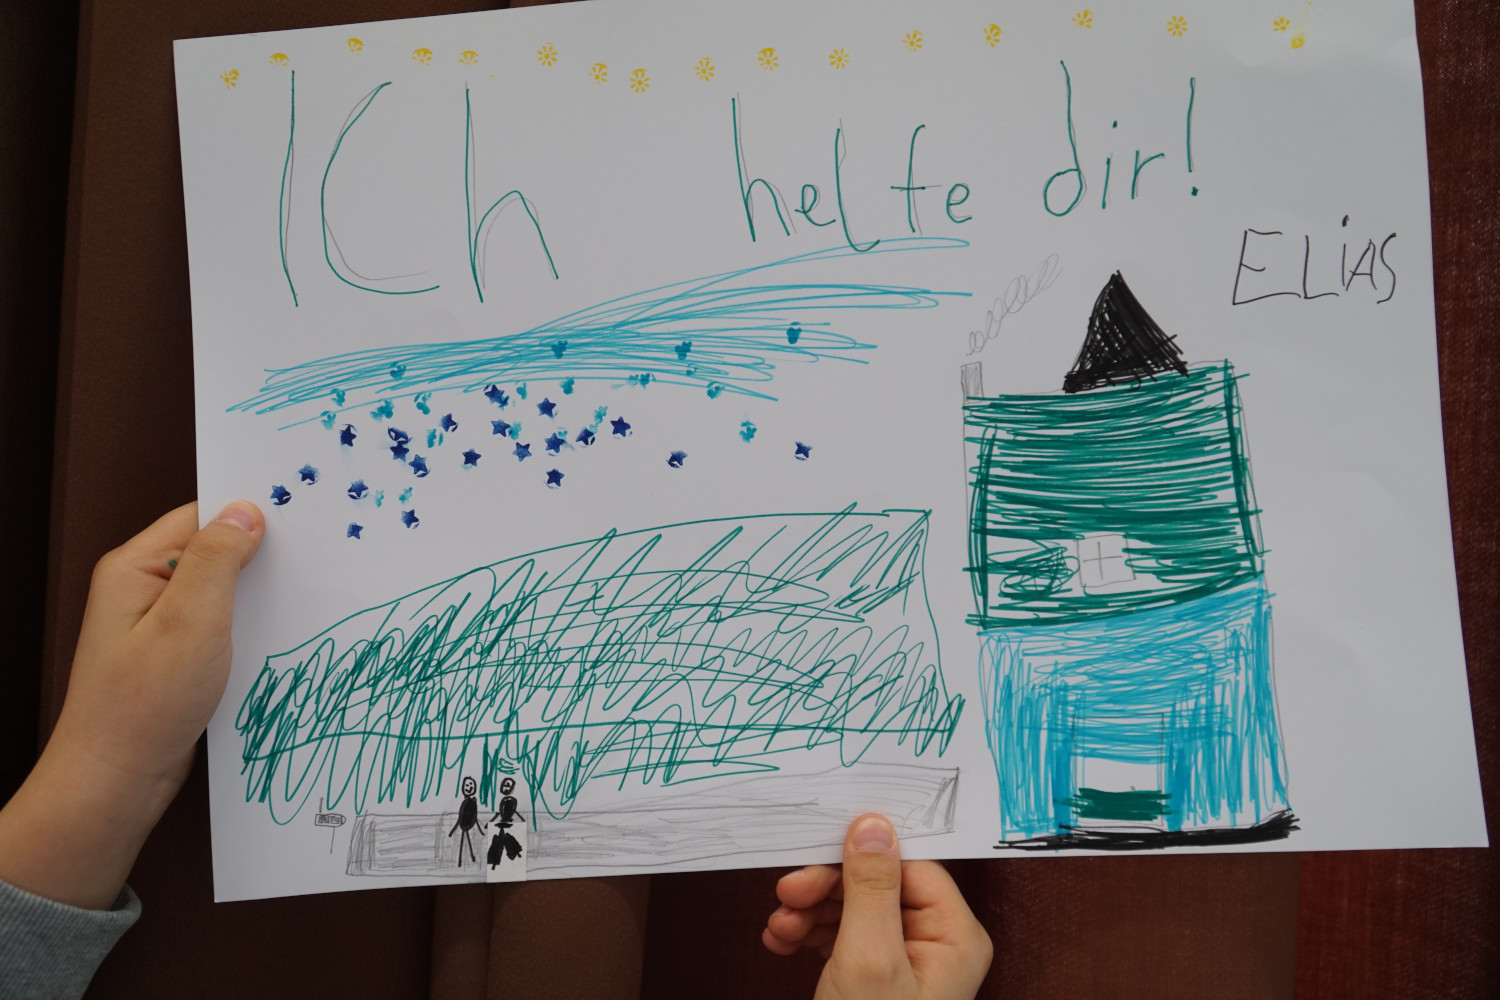 ICh helfe dir!
ELiAS